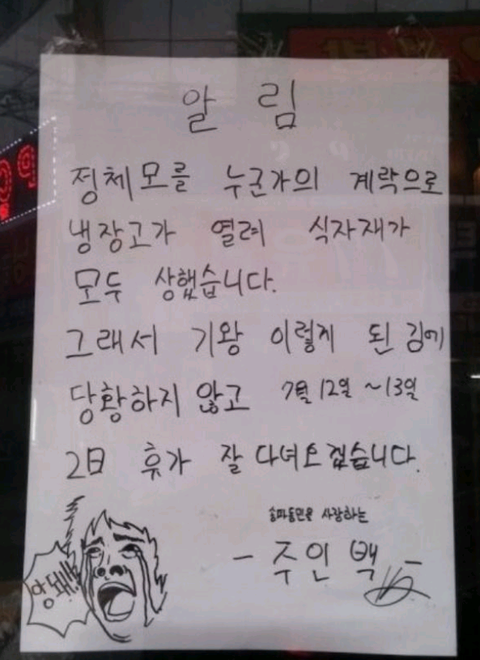 알림
정체모를 누군가의 계락으로
냉장고가 열려 식자재가
모두 상했습니다.
그래서 기왕 이렇게 된 김에
당황하지 않고 7월 12일 ~13일
2日 휴가 잘 다녀오겠습니다.
송파동민을 사랑하는
- 주인 백 -
안돼!!